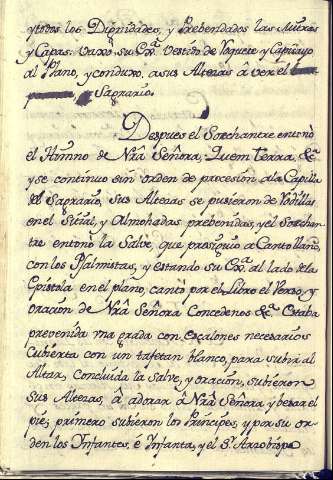 y todos los Dignidades, y Prebendados las Muzas
y Capas: vaxo su Exª. Vestido de Roquete y Capirayo
al Plano, y conduxo, a sus Altezas â ver el
Sagrario.
Despues el Sochantre entonò
el Himno de Nrâ Señora, Quem terra, &ª
y se continuo sin orden de procesion â la Capilla
del Sagrario, sus Altezas se pusieron de rodillas
en el Sitial, y Almohadas prebenidas, y el Sochan-
tre entonò la Salve, que prosiguio a Canto llano,
con los Psalmistas, y estando su Exª. al lado de la
Epistola en el plano, cantò por el Libro el Verso y
oracion de Nrâ Señora Concedenos &ª. Estaba
prevenida vna grada con escalones necesarios
Cubierta con un tafetan blanco, para subir al
Altar, Concluida la Salve, y oracion, subieron
sus Altezas, à adorar â Nrâ Señora y besar el
pie, primero subieron los Principes, y por su or-
den los Infantes, è Infanta, y el Sr. Arzobispo